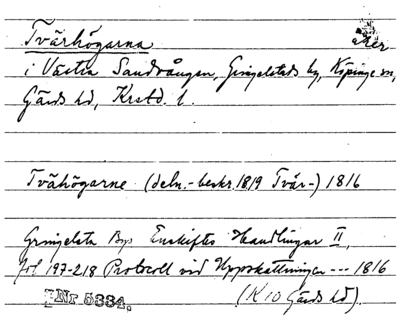 Tvärhögarna åker
i Västra Sandvången, Gringelstads by, Köpinge sn,
Gärds hd, Krstd. l.
Tvähögarne (deln.-beskr. 1819 Tvär-) 1816
Gringelsta Bys Enskiftes Handlingar II,
fol 197-218 Protocoll vid Uppskattningen --- 1816
Nr. 5334. (K 10 Gärds hd).